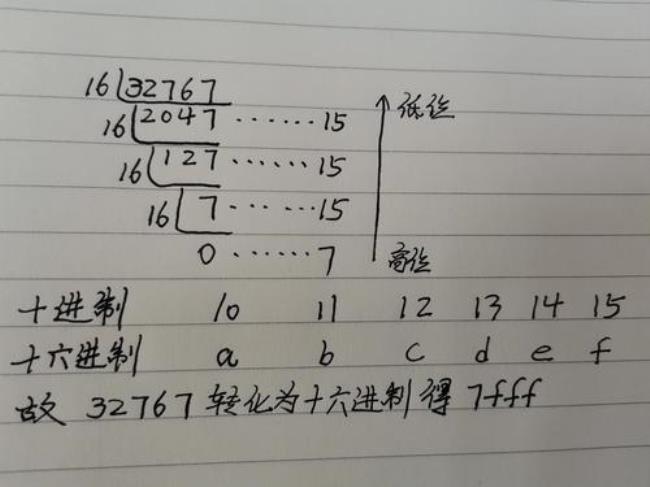 16 32767
16 2047 ······· 15 低位
16 127 ······ 15
16 7 ······ 15
0 ······ 7 高位
十进制 10 11 12 13 14 15
十六进制 a b c d e f
故 32767 转化为十六进制得 7fff